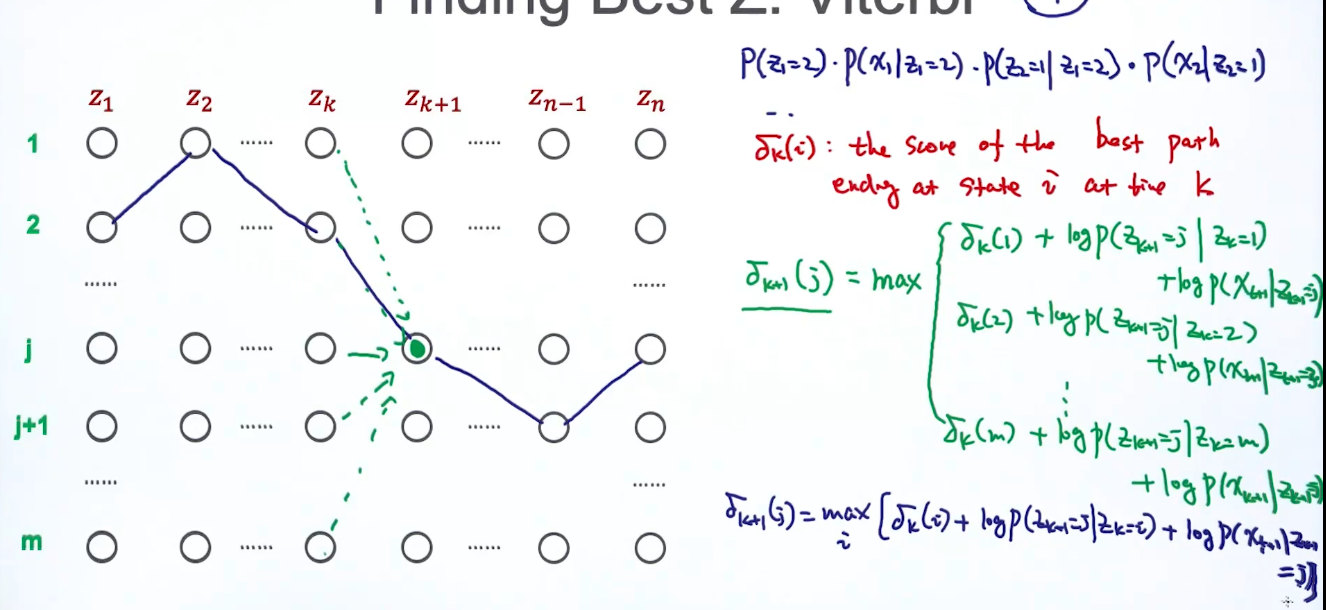 Finding Best Z: Viterbi
P(z₁=2) · P(x₁|z₁=2) · P(z₂=1|z₁=2) · P(x₂|z₂=1)
z₁ z₂ zₖ zₖ₊₁ zₙ₋₁ zₙ
1 ...... ......
δₖ(i) : the score of the best path
ending at state i at time k
2 ...... ......
...... ......
j ...... ......
j+1 ...... ......
...... ......
m ...... ......
δₖ₊₁(j) = max { δₖ(1) + log p(zₖ₊₁=j | zₖ=1)
+ log p(xₖ₊₁|zₖ₊₁=j)
δₖ(2) + log p(zₖ₊₁=j | zₖ=2)
+ log p(xₖ₊₁|zₖ₊₁=j)
⋮
δₖ(m) + log p(zₖ₊₁=j | zₖ=m)
+ log p(xₖ₊₁|zₖ₊₁=j)
δₖ₊₁(j) = max [δₖ(i) + log p(zₖ₊₁=j|zₖ=i) + log p(xₖ₊₁|zₖ₊₁
i
=j)]